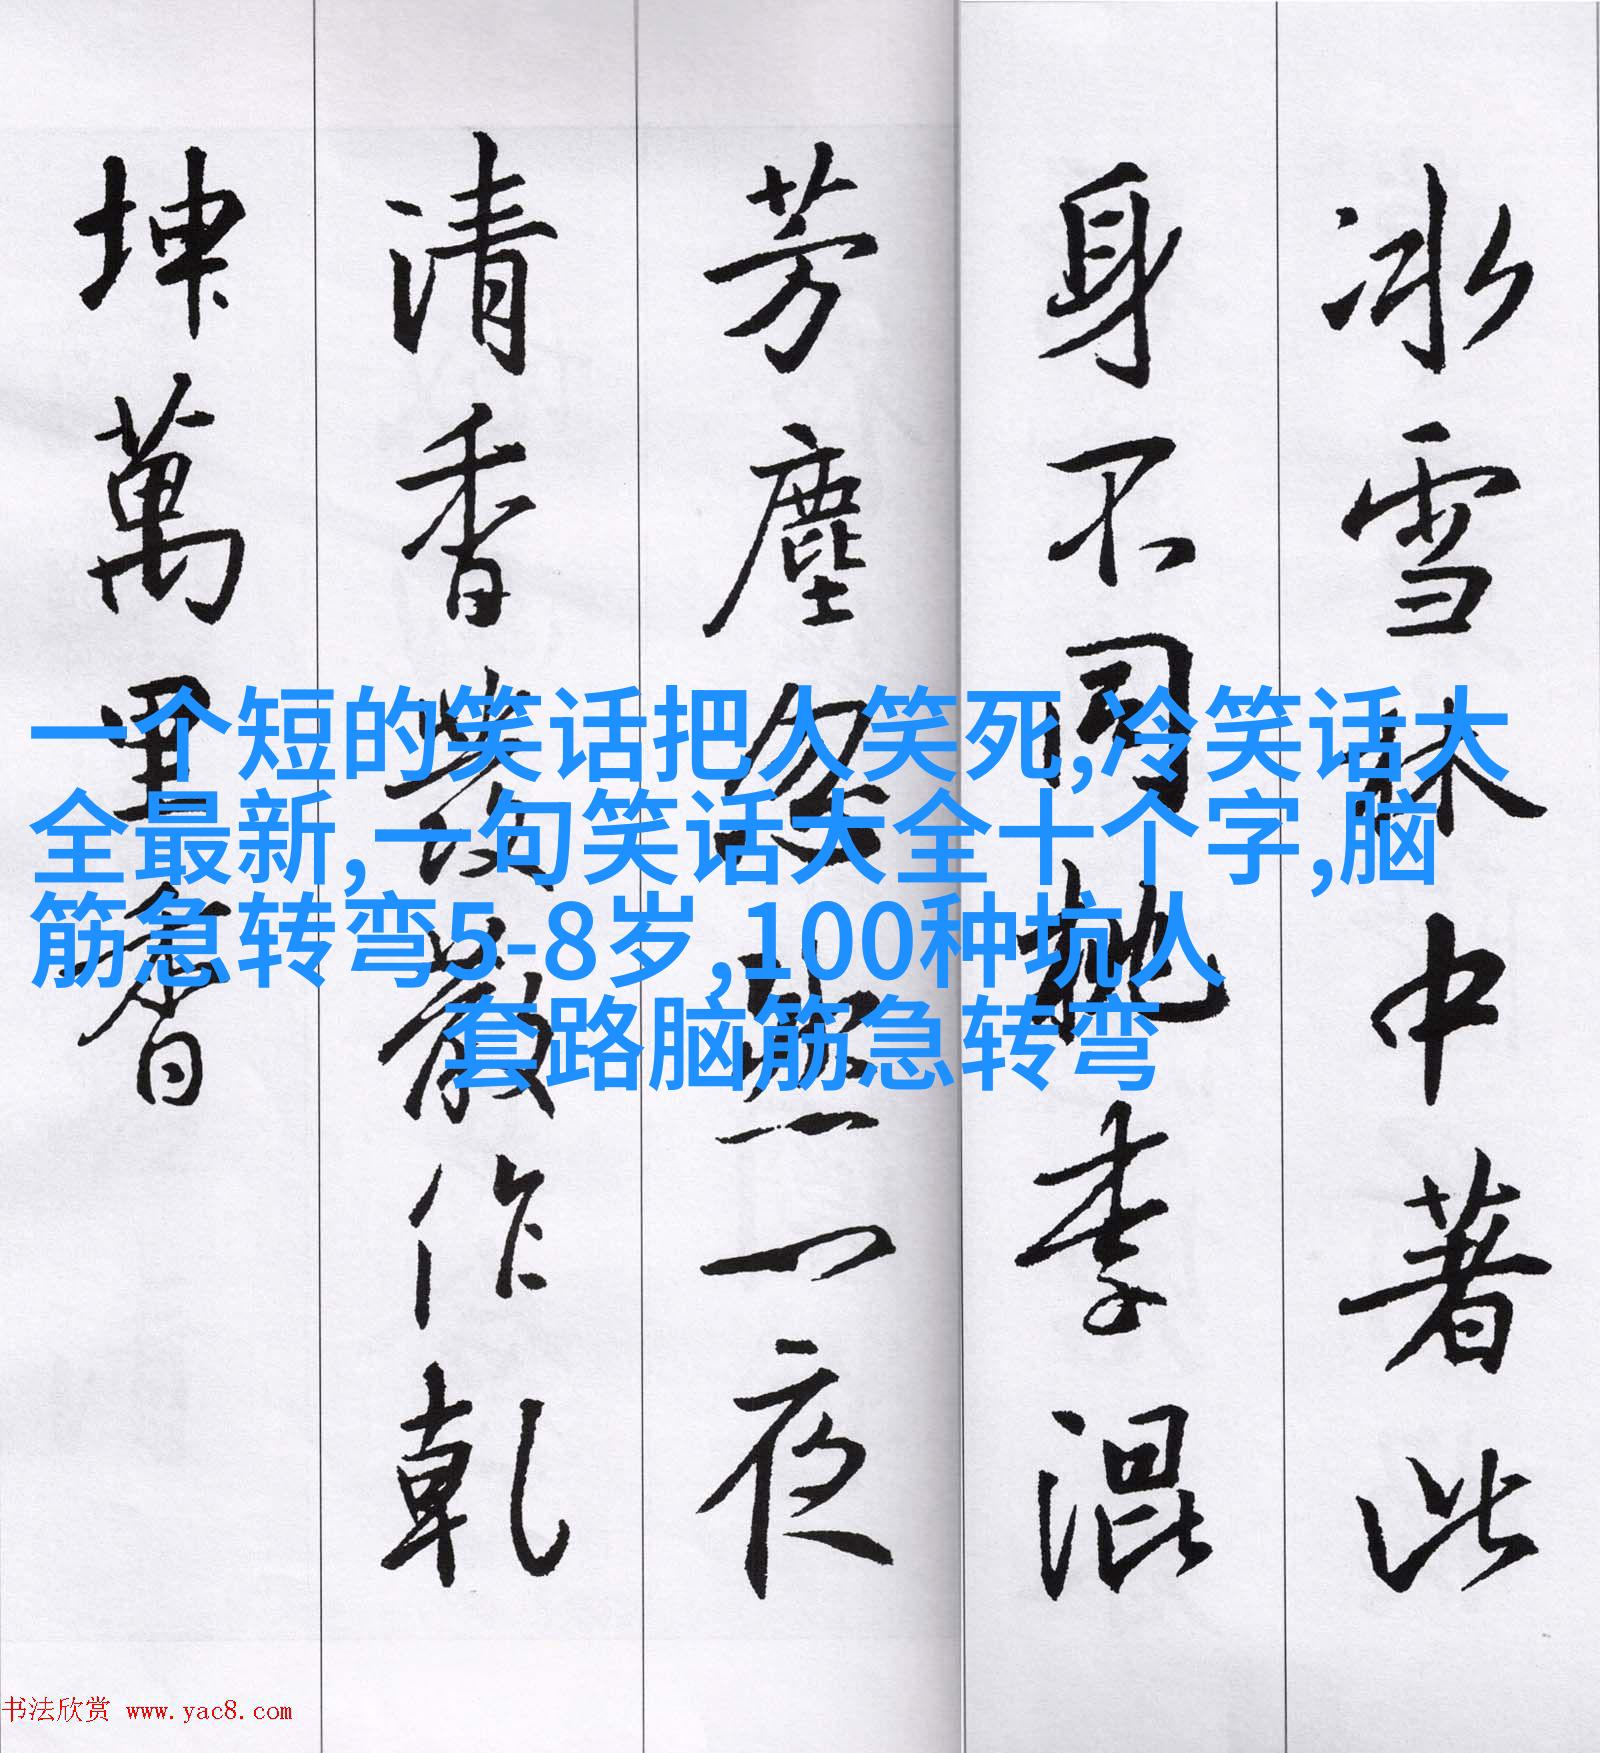 冰雪林中著此
身不同桃李混
芳塵忽然一夜
清香發散作乾
坤萬里春
一个短的笑话把人笑死,冷笑话大
全最新,一句笑话大全十个字,脑
筋急转弯5-8岁,100种坑人
套路脑筋急转弯
书法欣赏 www.yac8.com